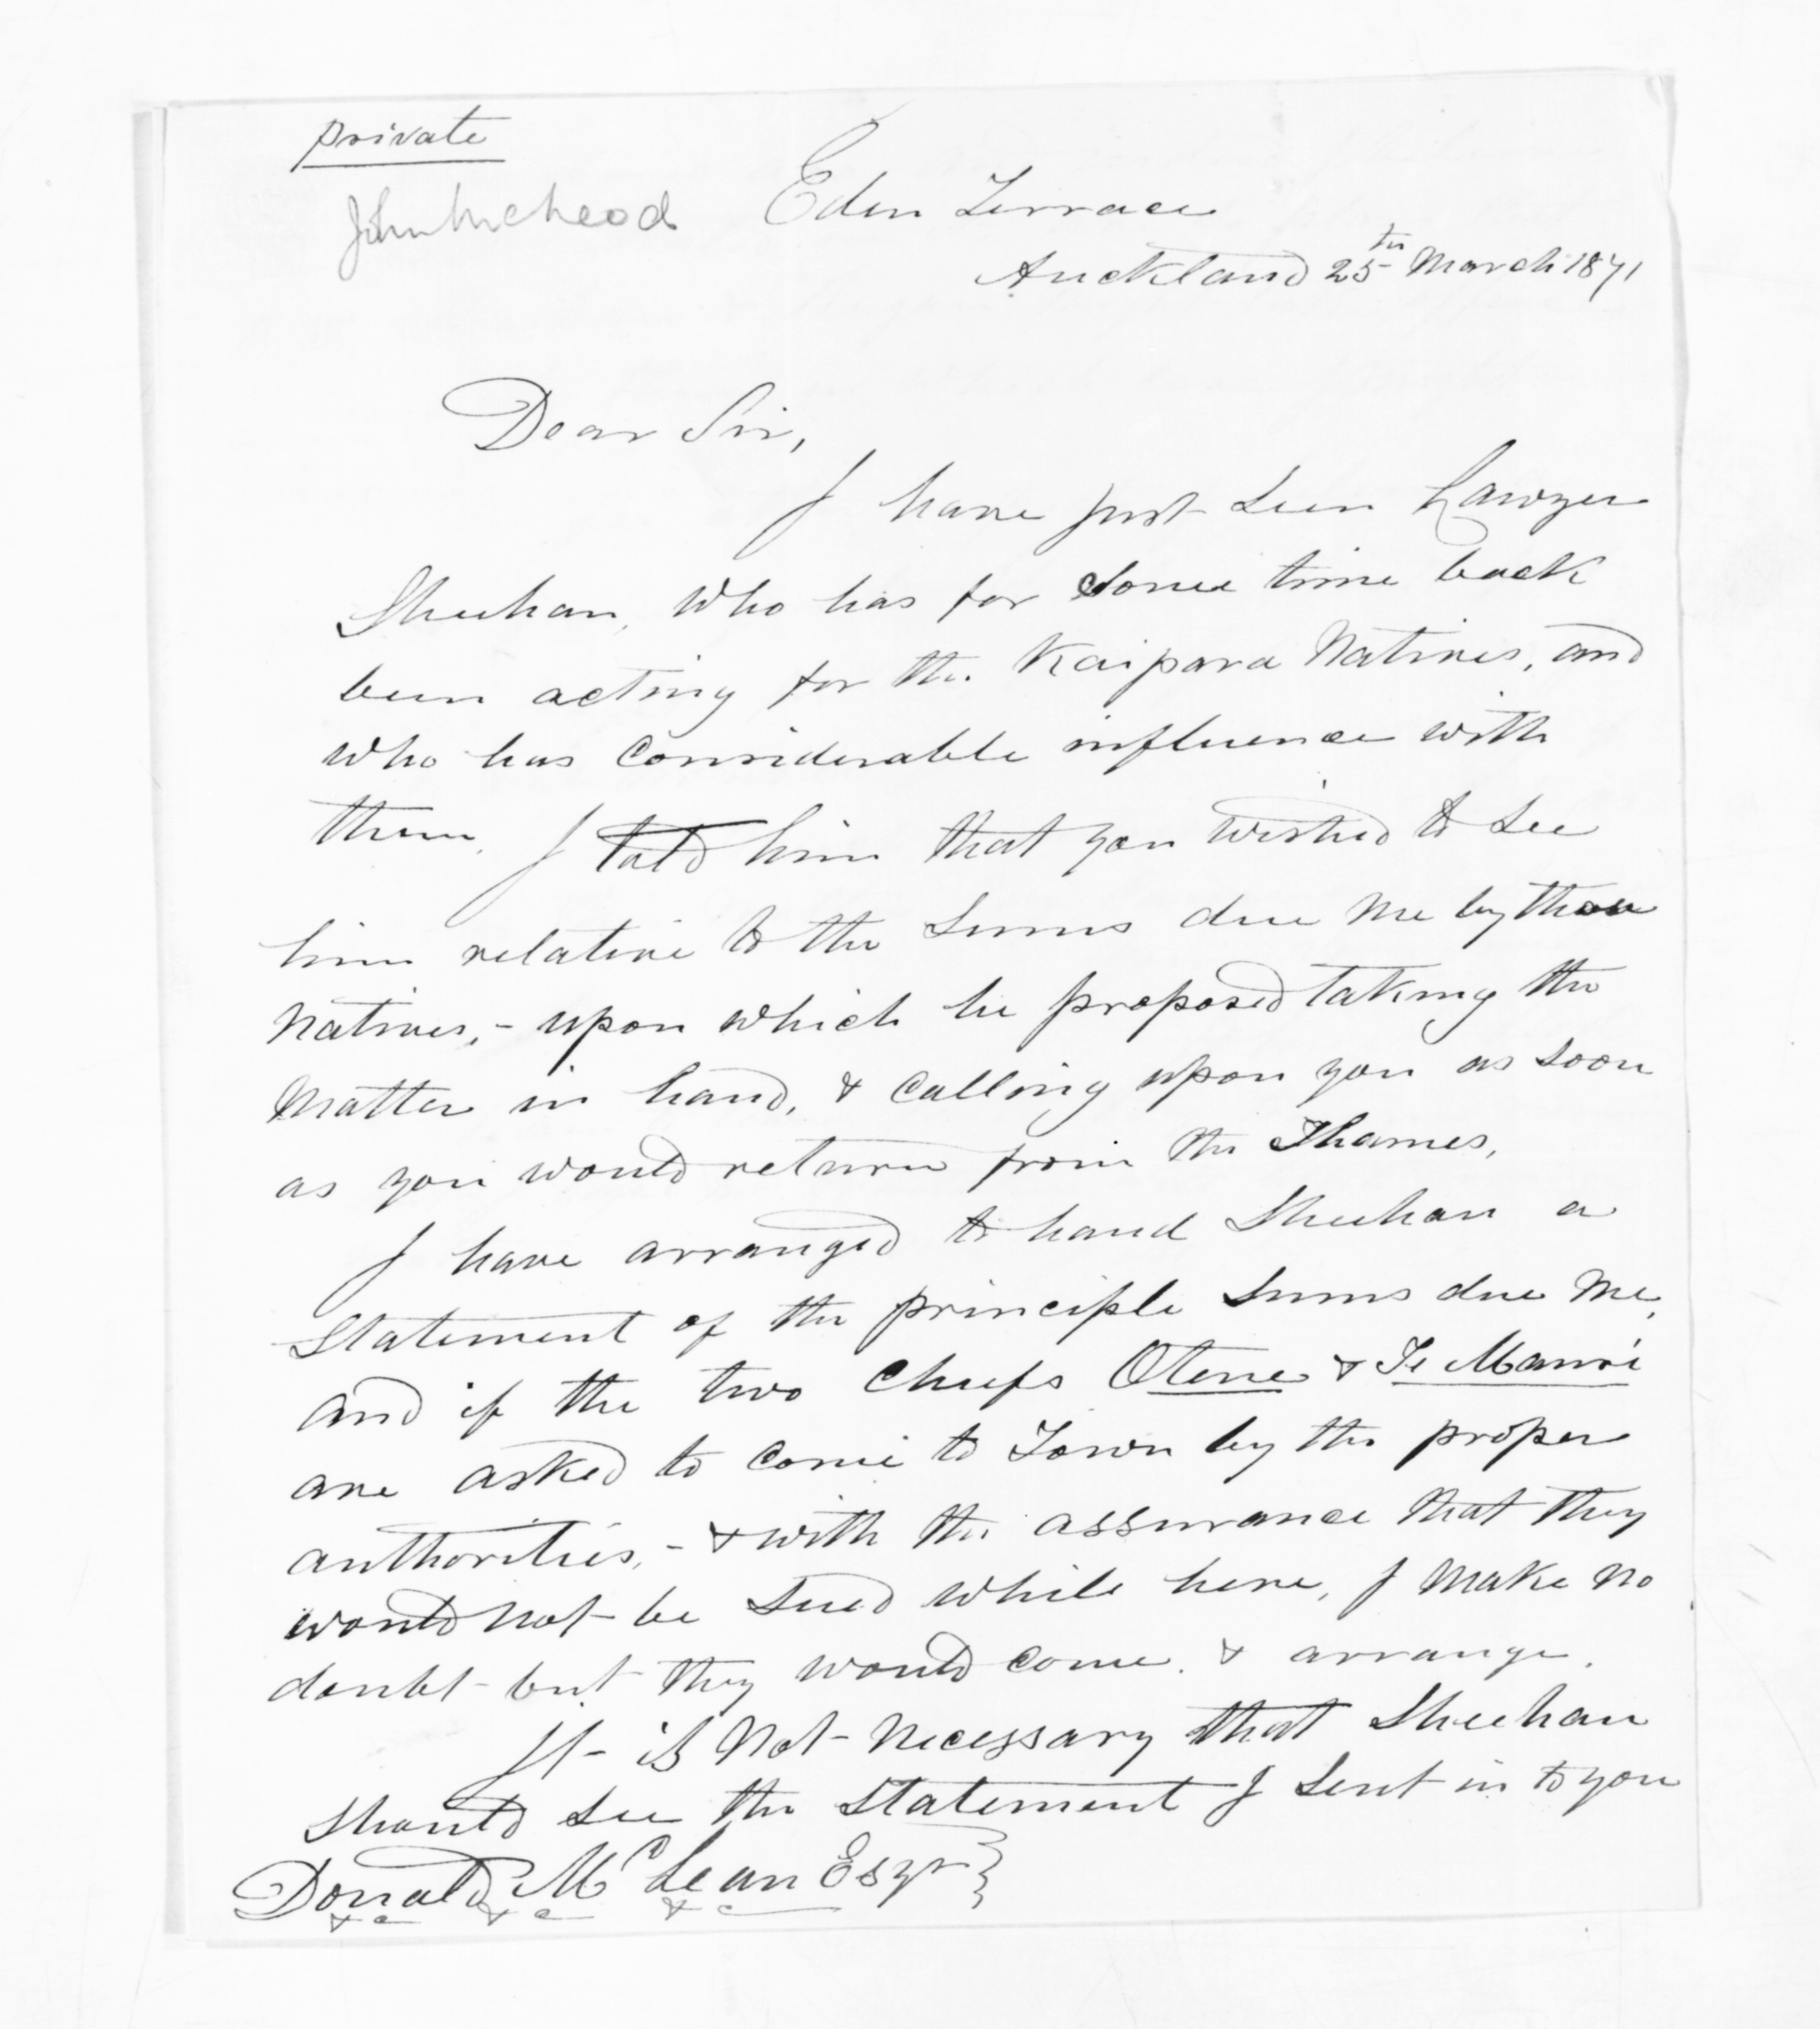 private
John McLeod
Eden Terrace
Auckland 25th March 1871
Dear Sir,
I have just seen Lawyer
Sheehan, who has for some time back
been acting for the Kaipara Natives, and
who has Considerable influence with
them, I told him that you wished to see
him relative to the sums due me by those
Natives, - upon which he proposed taking the
Matter in hand, & Calling upon you as soon
as you would return from the Thames,
I have arranged to hand Sheehan a
Statement of the principle sums due me,
and if the two Chiefs Otene & Te Mauri
are asked to come to Town by the proper
authorities, - & with the assurance that they
would not be sued while here, I make no
doubt but they would come & arrange.
It is Not necessary that Sheehan
should see the statement I sent in to you
Donald McLean Esqr }
&c &c &c